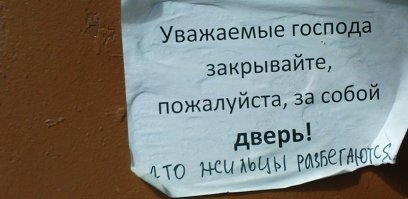 Уважаемые господа
закрывайте,
пожалуйста, за собой
дверь!
что жильцы разбегаются